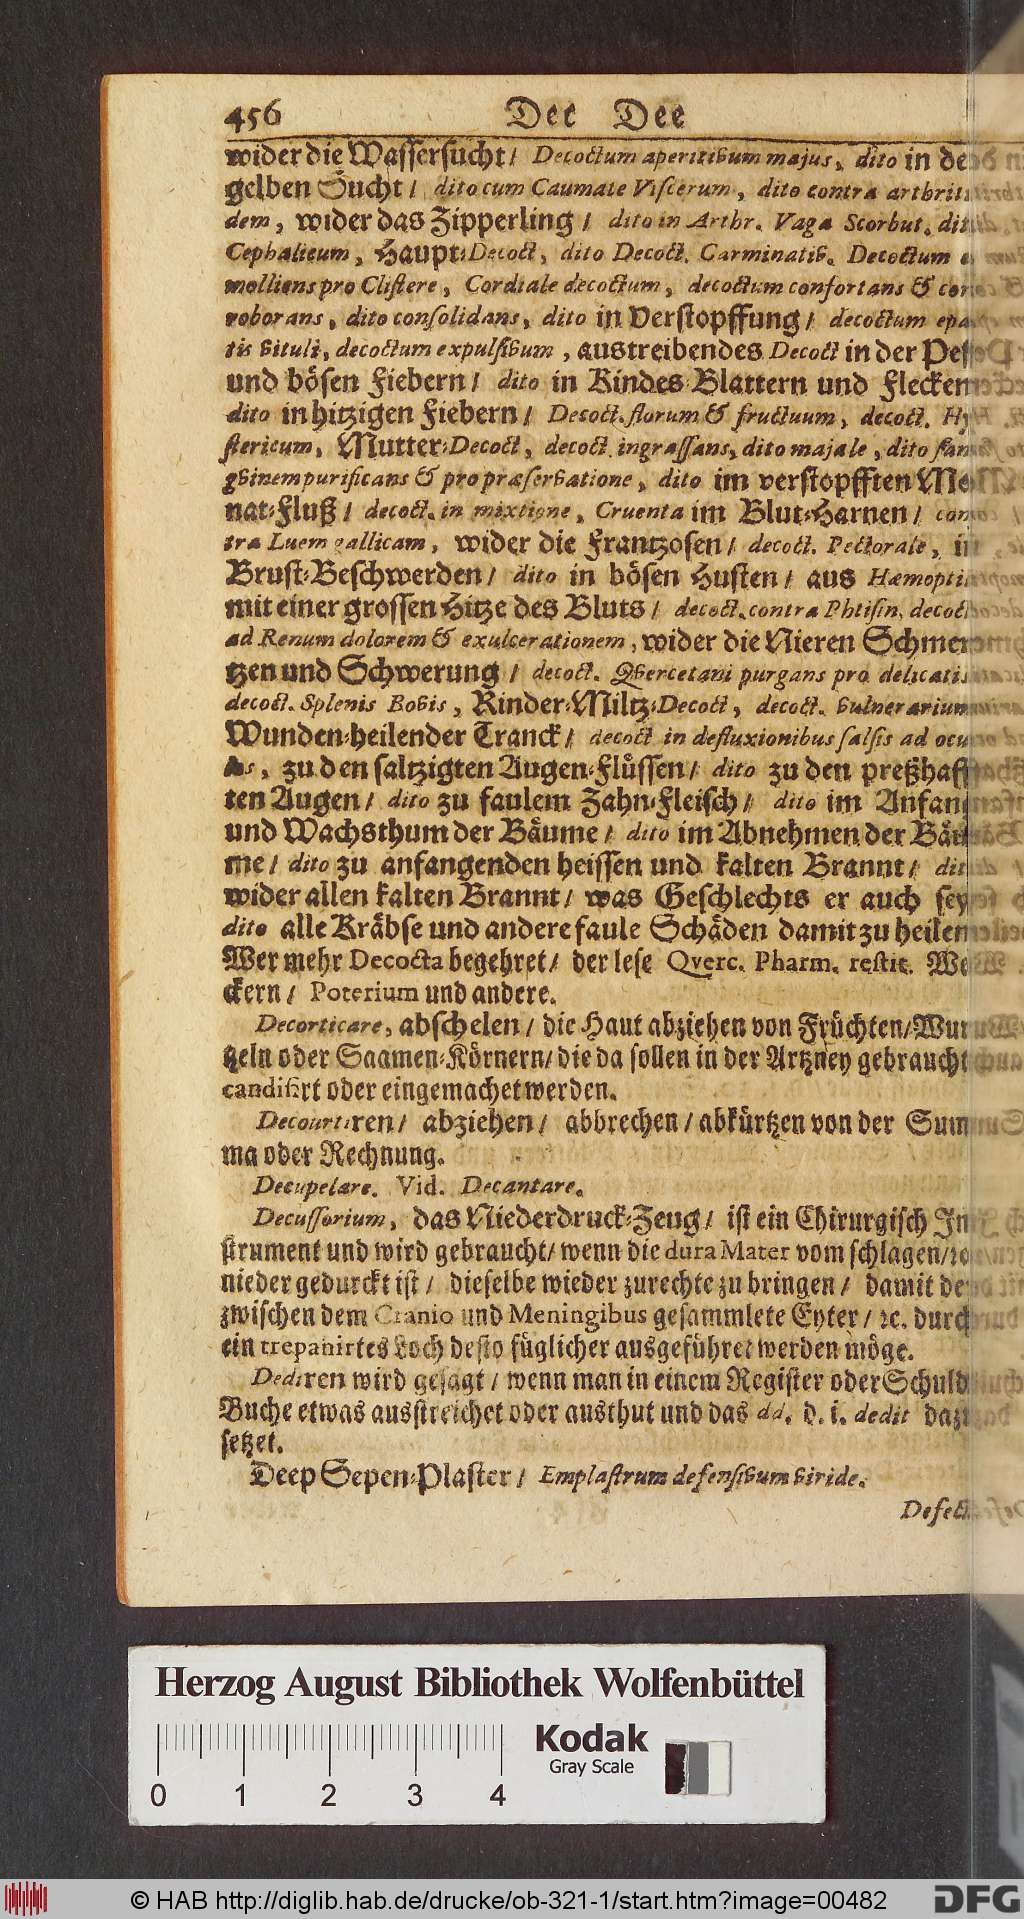 456 Dec Dee
wider die Wassersucht/ Decoctum aperitivum majus, dito in der
gelben Sucht/ dito cum Caumate Viscerum, dito contra arthriti-
dem, wider das Zipperling/ dito in Arthr. Vaga Scorbut. dito
Cephalicum, Haupt-Decoct, dito Decoct. Carminativ. Decoctum
molliens pro Clistere, Cordiale decoctum, decoctum confortans & cor-
roborans, dito consolidans, dito in Verstopffung/ decoctum epa-
tis vituli, decoctum expulsivum, austreibendes Decoct in der Pest
und bösen Fiebern/ dito in Kindes-Blattern und Flecken
dito in hitzigen Fiebern/ Decoct. florum & fructuum, decoct. Hy-
stericum, Mutter-Decoct, decoct. ingrassans, dito majale, dito san-
gvinem purificans & pro præservatione, dito im verstopfften Mo-
nat-Fluß/ decoct. in mixtione, Cruenta im Blut-Harnen/ con-
tra Luem gallicam, wider die Frantzosen/ decoct. Pectorale, in
Brust-Beschwerden/ dito in bösen Husten/ aus Hæmopti
mit einer grossen Hitze des Bluts/ decoct. contra Phtisin, decoct
ad Renum dolorem & exulcerationem, wider die Nieren Schmer-
tzen und Schwerung/ decoct. Qvercetani purgans pro delicatis
decoct. Splenis Bovis, Rinder-Miltz-Decoct, decoct. vulnerarium
Wunden-heilender Tranck/ decoct in defluxionibus salsis ad ocu-
los, zu den saltzigten Augen-Flüssen/ dito zu den preßhaff-
ten Augen/ dito zu faulem Zahn-Fleisch/ dito im Anfang
und Wachsthum der Bäume/ dito im Abnehmen der Bäu-
me/ dito zu anfangenden heissen und kalten Brannt/ dito
wider allen kalten Brannt/ was Geschlechts er auch sey
dito alle Kräbse und andere faule Schäden damit zu heilen
Wer mehr Decocta begehret/ der lese Qverc. Pharm. restit. We-
ckern/ Poterium und andere.
Decorticare, abschelen/ die Haut abziehen von Früchten/Wur-
tzeln oder Saamen-Körnern/ die da sollen in der Artzney gebraucht
candisirt oder eingemachet werden.
Decourtiren/ abziehen/ abbrechen/ abkürtzen von der Sum-
ma oder Rechnung.
Decupelare. Vid. Decantare.
Decussorium, das Niederdruck-Zeug/ ist ein Chirurgisch In-
strument und wird gebraucht/ wenn die dura Mater vom schlagen/ꝛc
nieder gedurckt ist/ dieselbe wieder zurechte zu bringen/ damit der
zwischen dem Cranio und Meningibus gesammlete Eyter/ ꝛc. durch
ein trepanirtes Loch desto füglicher ausgeführet werden möge.
Dediren wird gesagt/ wenn man in einem Register oder Schuld
Buche etwas ausstreichet oder austhut und das dd. d. i. dedit dazu
setzet.
Deep Sepen-Plaster/ Emplastrum defensivum viride.
Defect
Herzog August Bibliothek Wolfenbüttel
0 1 2 3 4
Kodak
Gray Scale
© HAB http://diglib.hab.de/drucke/ob-321-1/start.htm?image=00482
DFG